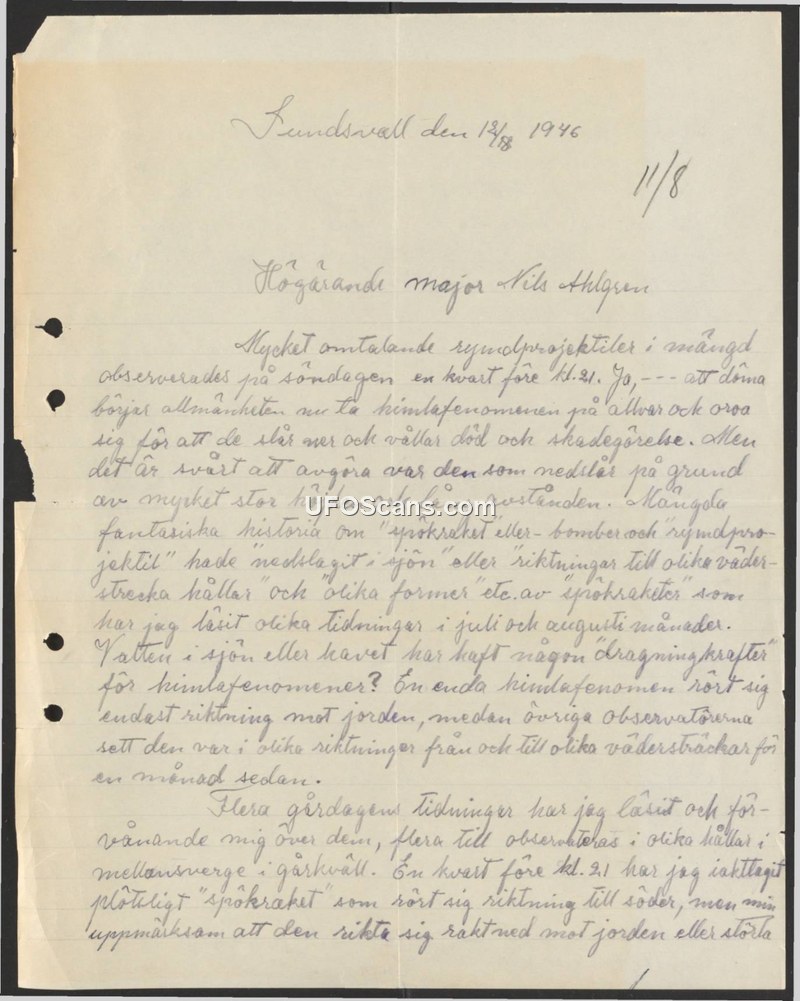 Sundsvall den 12/8 1946
11/8
Högärande major Nils Ahlgren
Mycket omtalande rymdprojektiler i mängd
observerades på söndagen en kvart före kl. 21. Ja, --- att döma
börjar allmänheten nu ta himlafenomenen på allvar och oroa
sig för att de slår ner och vållar död och skadegörelse. Men
det är svårt att avgöra var den som nedslår på grund
av mycket stor avstånden. Mängda
UFOScans.com
fantasiska historia om "spökraket" eller - bomber och "rymdpro-
jektil" hade "nedslagit i sjön" eller "riktningar till olika väder-
strecka hållar" och "olika former" etc. av "spökraketer" som
har jag läsit olika tidningar i juli och augusti månader.
Vatten i sjön eller havet har haft någon "dragningkrafter"
för himlafenomener? En enda himlafenomen rört sig
endast riktning mot jorden, medan övriga observatörerna
sett den var i olika riktningar från och till olika vädersträckar för
en månad sedan.
Flera gårdagens tidningar har jag läsit och för-
vånande mig över dem, flera till observateras i olika hållar i
mellansverge i gårkväll. En kvart före kl. 21 har jag iakttagit
plötsligt "spökraket" som rört sig riktning till söder, men min
uppmärksam att den rikta sig rakt ned mot jorden eller störta